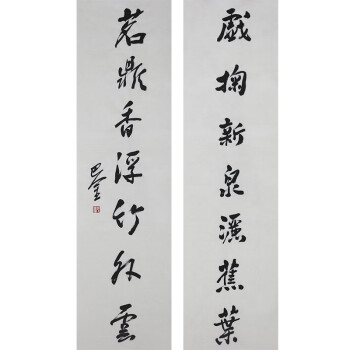 戲掬新泉灑蕉葉
茗鼎香浮竹外雲
巴金